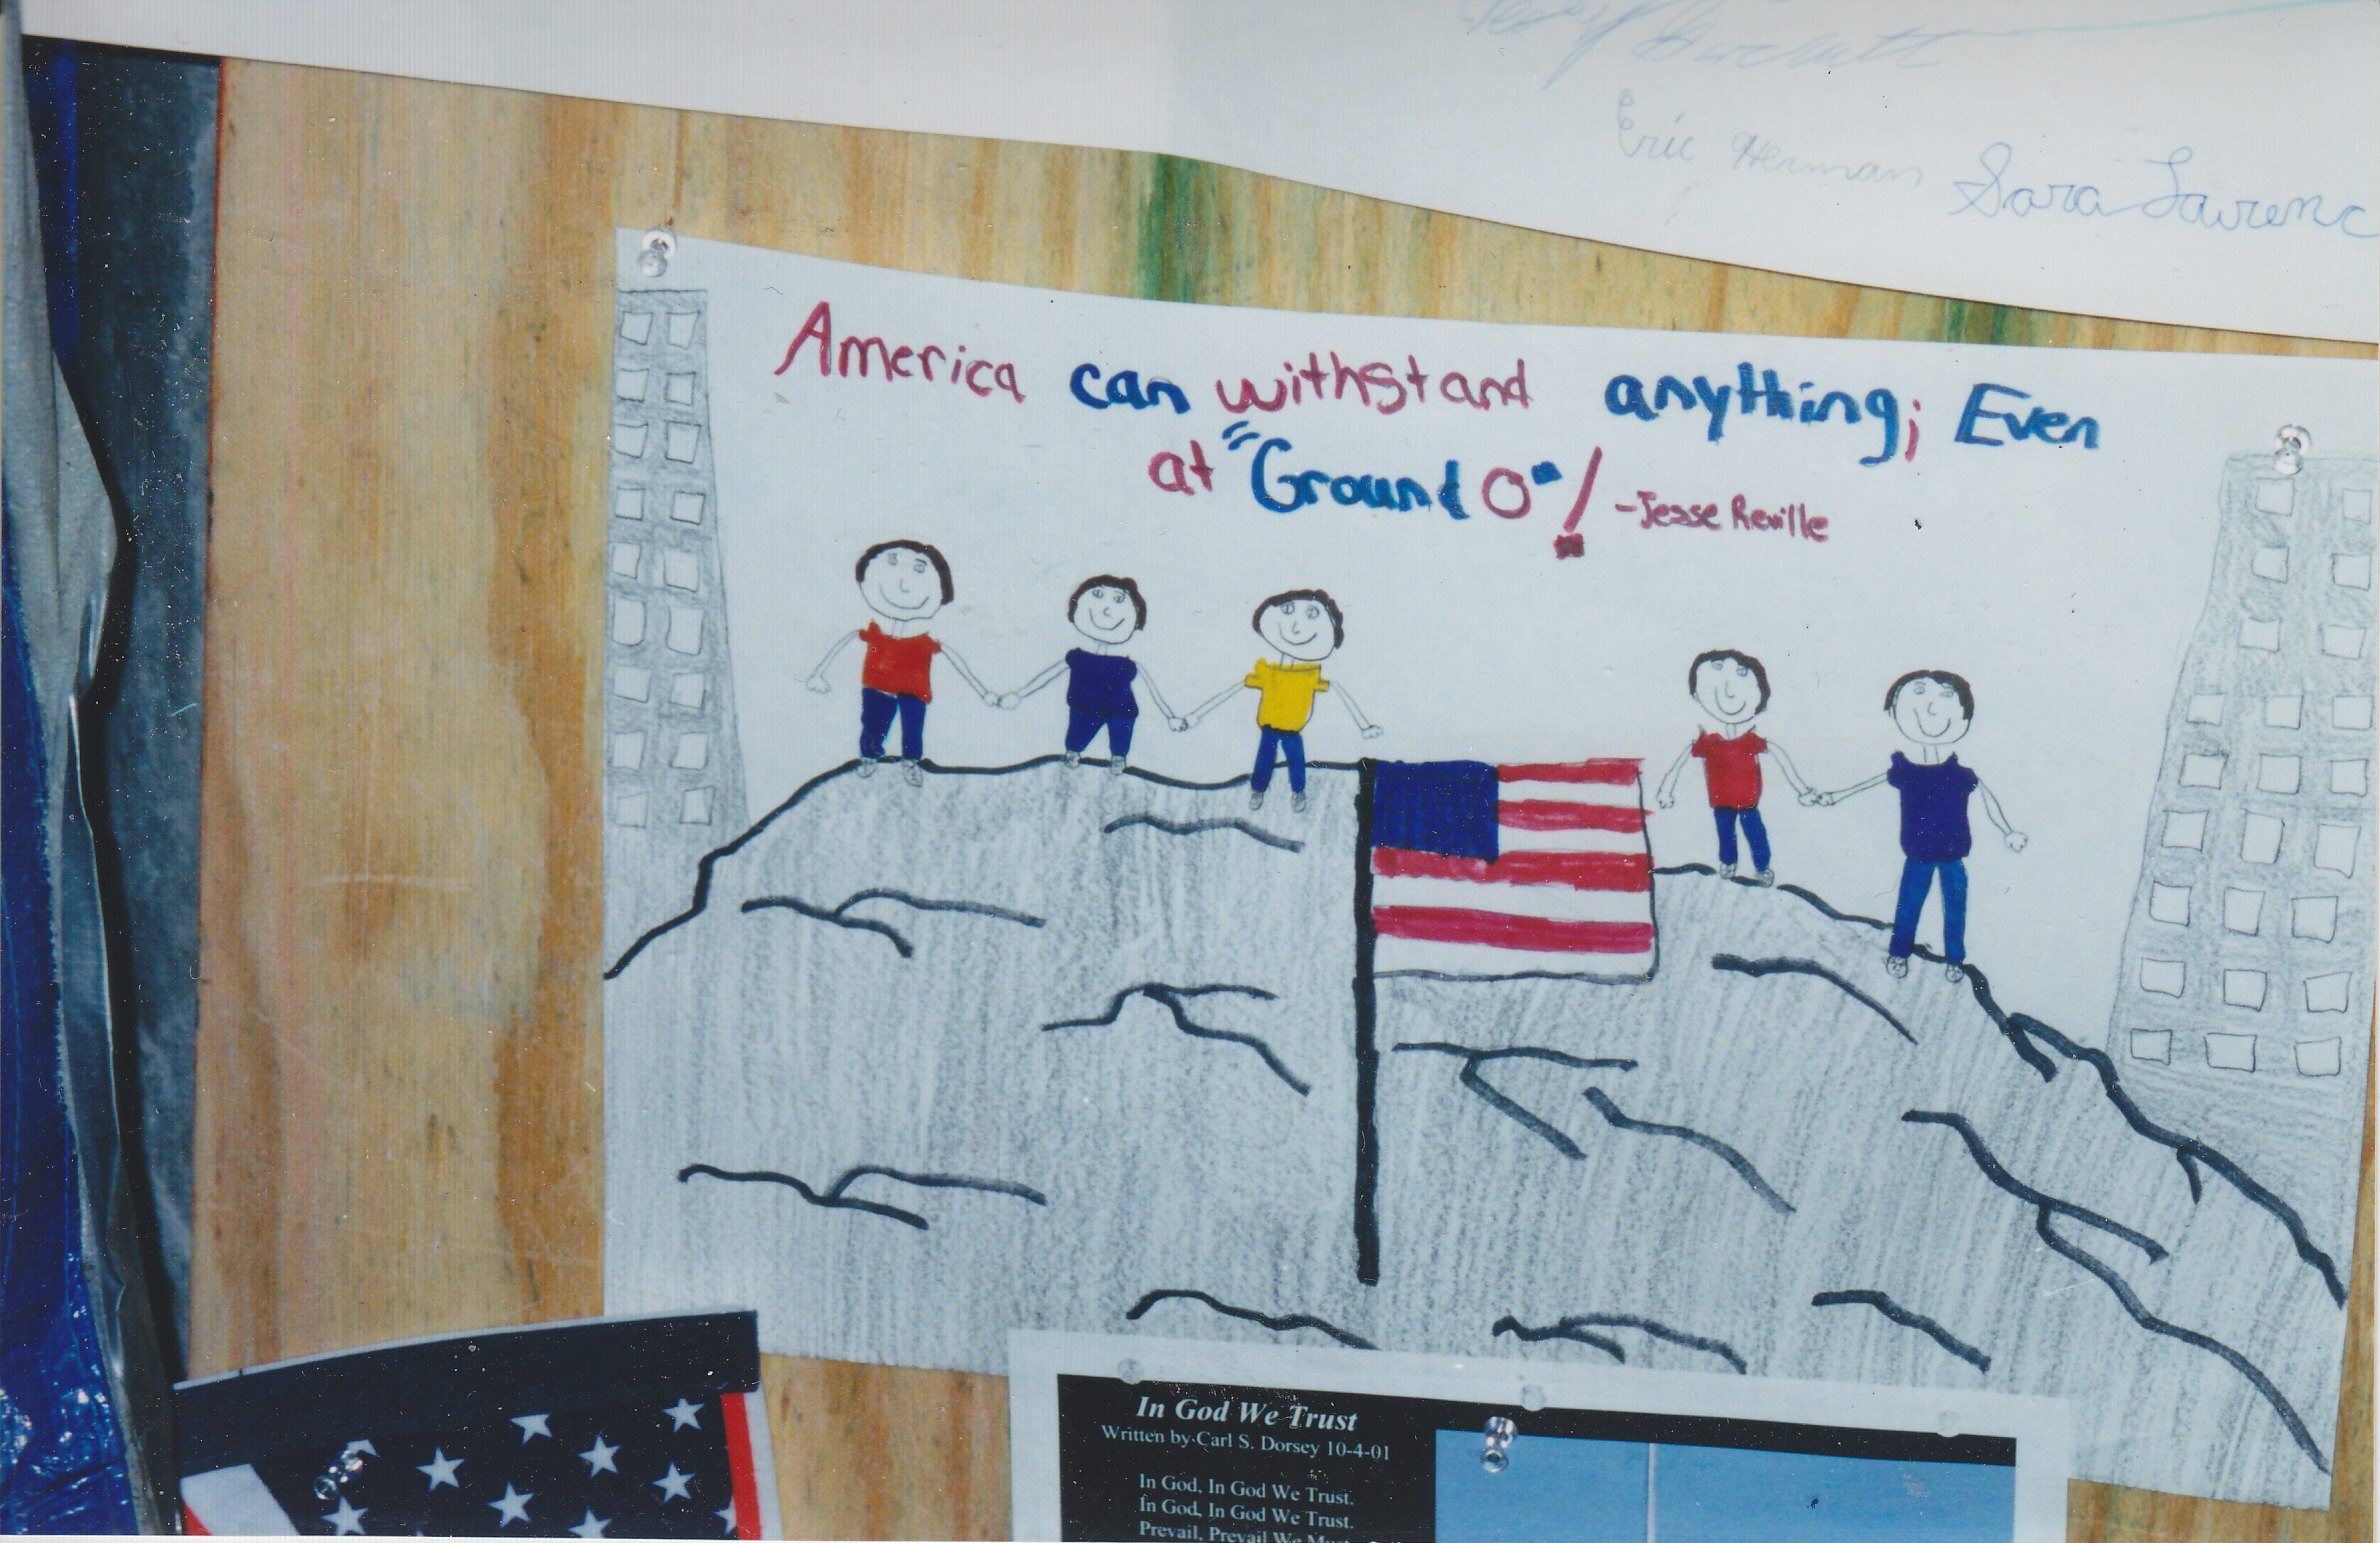 Eric Herman
Sara Lawrenc
America can withstand anything; Even
at "Ground 0"! -Jesse Reville
In God We Trust
Written by Carl S. Dorsey 10-4-01
In God, In God We Trust.
In God, In God We Trust.
Prevail, Prevail We Must